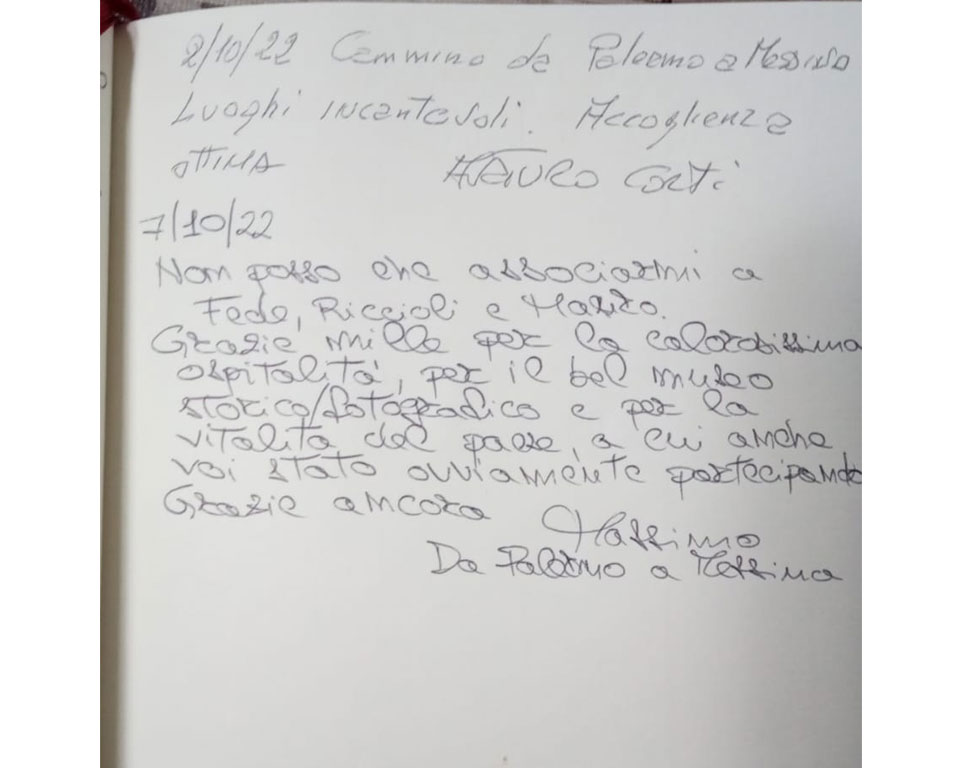 2/10/22 Cammino da Palermo a Messina
Luoghi incantevoli. Accoglienza
OTTIMA Corti
7/10/22
Non posso che associarmi a
Fede, Riccioli e
Grazie mille per la calorosissima
ospitalità, per il bel museo
storico/fotografico e per la
vitalità del paese, a cui anche
voi stato ovviamente partecipando
Grazie ancora Massimo
Da Palermo a Messina